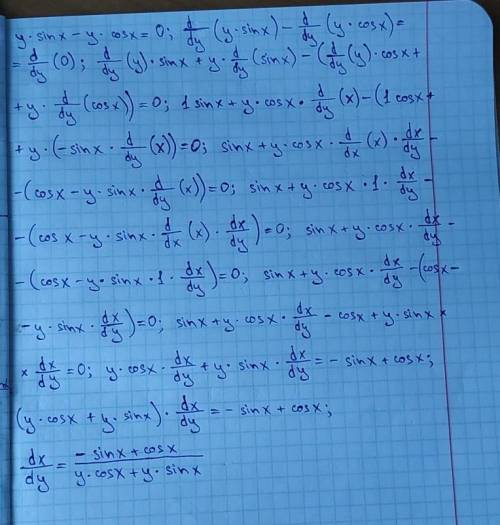 y · sinx – y · cosx = 0; d/dy (y · sinx) – d/dy (y · cosx) =
= d/dy (0); d/dy (y) · sinx + y · d/dy (sinx) – (d/dy (y) · cosx +
+ y · d/dy (cosx)) = 0; 1 sinx + y · cosx · d/dy (x) – (1 cosx +
+ y · (– sinx · d/dy (x)) = 0; sinx + y · cosx · d/dx (x) · dx/dy –
– (cosx – y · sinx · d/dy (x)) = 0; sinx + y · cosx · 1 · dx/dy –
– (cosx – y · sinx · d/dx (x) · dx/dy) = 0; sinx + y · cosx · dx/dy –
– (cosx – y · sinx · 1 · dx/dy) = 0; sinx + y · cosx · dx/dy – (cosx –
– y · sinx · dx/dy) = 0; sinx + y · cosx · dx/dy – cosx + y · sinx ×
× dx/dy = 0; y · cosx · dx/dy + y · sinx · dx/dy = – sinx + cosx;
(y · cosx + y · sinx) · dx/dy = – sinx + cosx;
dx/dy = (– sinx + cosx)/(y · cosx + y · sinx)